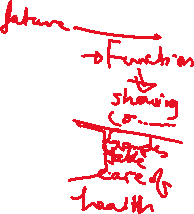 future
Function
showing
co
take
care of
health